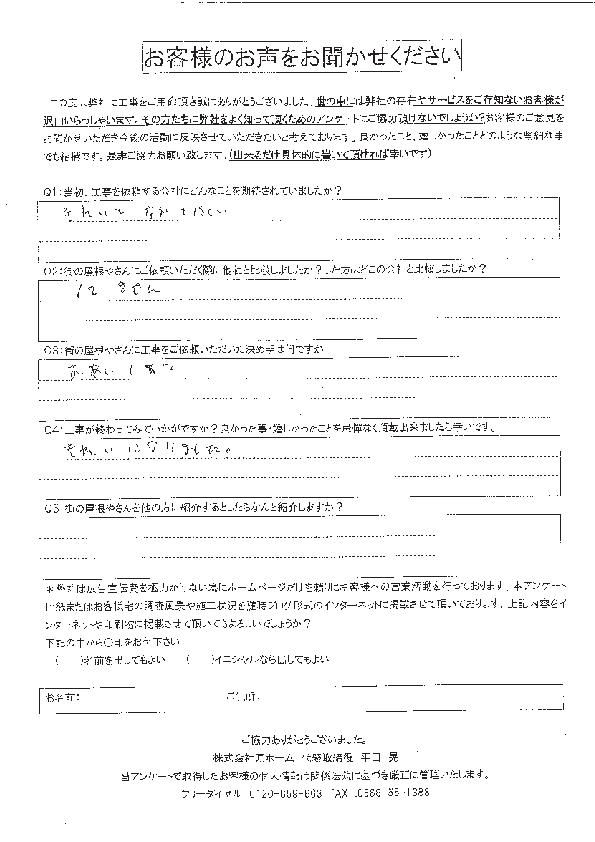 お客様のお声をお聞かせください
この度は弊社に工事をご用命頂き誠にありがとうございました。世の中には弊社の存在やサービスをご存知ないお客様が
沢山いらっしゃいます。その方たちに弊社をよく知って頂くためのアンケートにご協力頂けないでしょうか?お客様のご意見を
お聞かせいただき今後の活動に反映させていただきたいと考えております。良かったこと、悪かったことどのような些細な事
でも結構です。是非ご協力お願い致します。(出来るだけ具体的に書いて頂ければ幸いです)
Q1:当初、工事を依頼する会社にどんなことを期待されていましたか?
きれいに
Q2:街の屋根やさんにご依頼いただく際に他社と比較しましたか?した方はどこの会社と比較しましたか?
ません
Q3:街の屋根やさんに工事をご依頼いただいた決め手は何ですか
Q4:工事が終わってみていかがですか?良かった事・嬉しかったことを忌憚なく頂戴出来ましたら幸いです。
きれいになりました。
Q5:街の屋根やさんを他の方に紹介するとしたらなんと紹介しますか?
※弊社は広告宣伝費を極力かけない為にホームページだけを頼りにお客様への営業活動を行っております。本アンケート
用紙またはお客様宅の調査風景や施工状況を随時ブログ形式のインターネットに掲載させて頂いております。上記内容をイ
ンターネットや印刷物に掲載させて頂いてもよろしいでしょうか?
下記の中から〇印をお付下さい
( )名前を出してもよい ( )イニシャルなら出してもよい
お名前: ご住所:
ご協力ありがとうございました。
株式会社 ホーム 代表取締役
当アンケートで取得したお客様の個人情報は関係法規に基づき厳正に管理いたします。
フリーダイヤル FAX